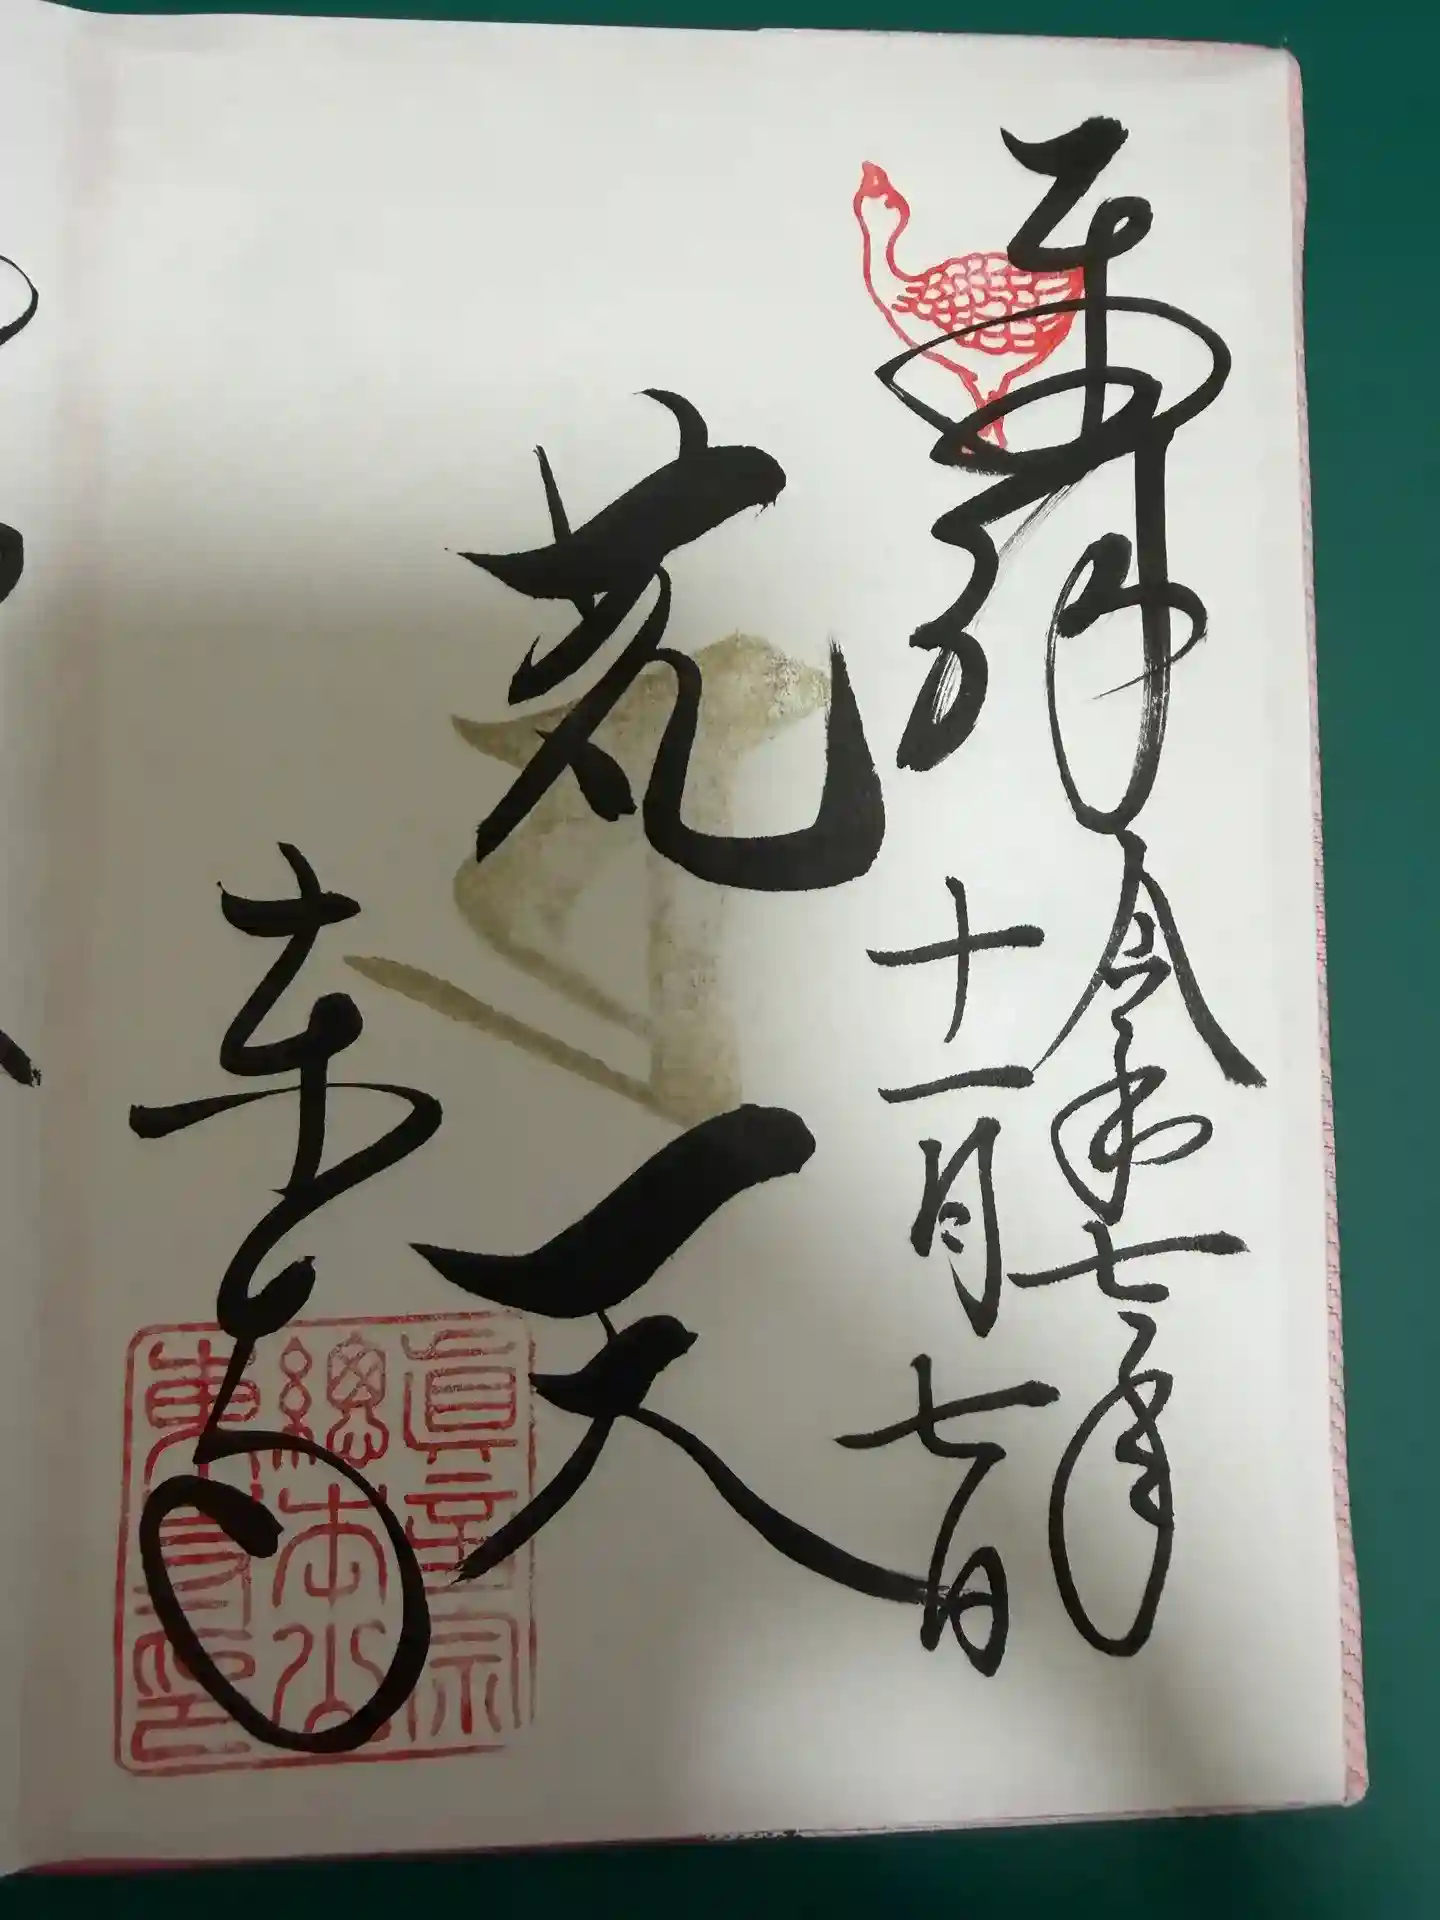 奉拝
令和七年
十一月七日
梵天
東寺
眞言宗
總本山
東寺印